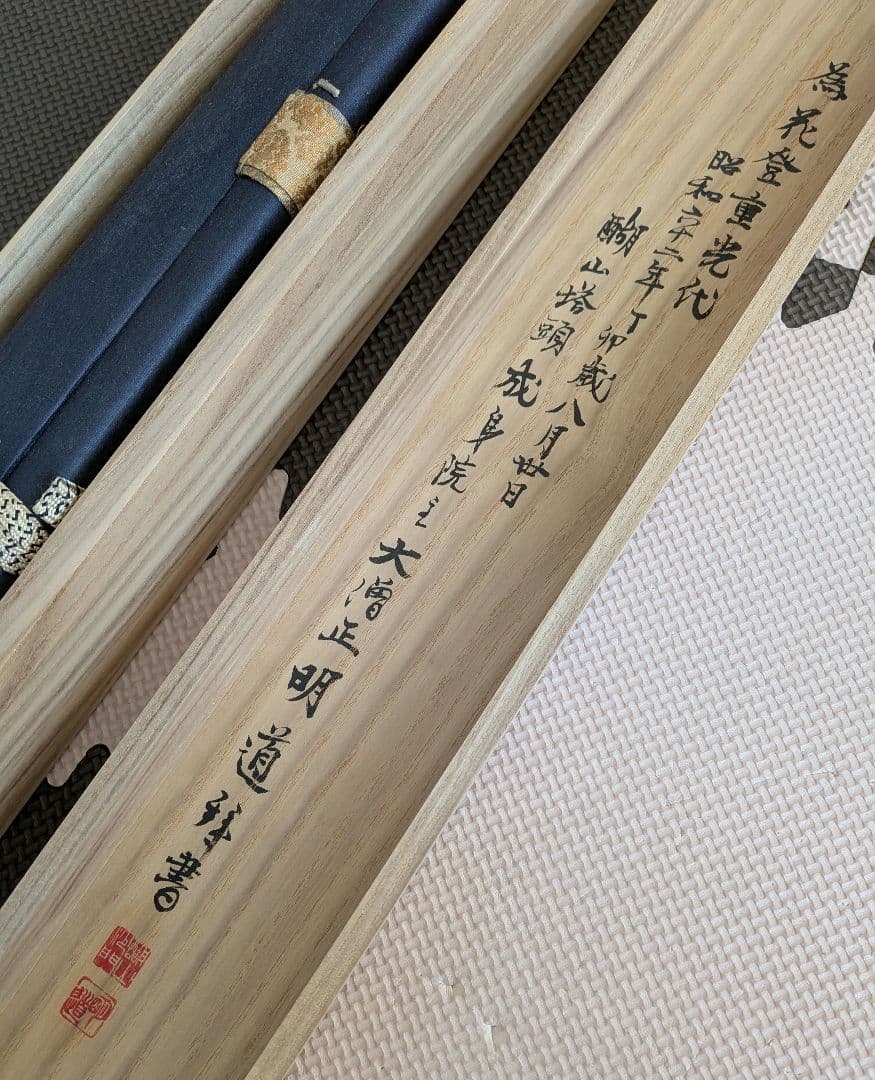 為花登重光代
昭和六十二年丁卯歳八月丗日
醐山塔頭成身院主大僧正明道書